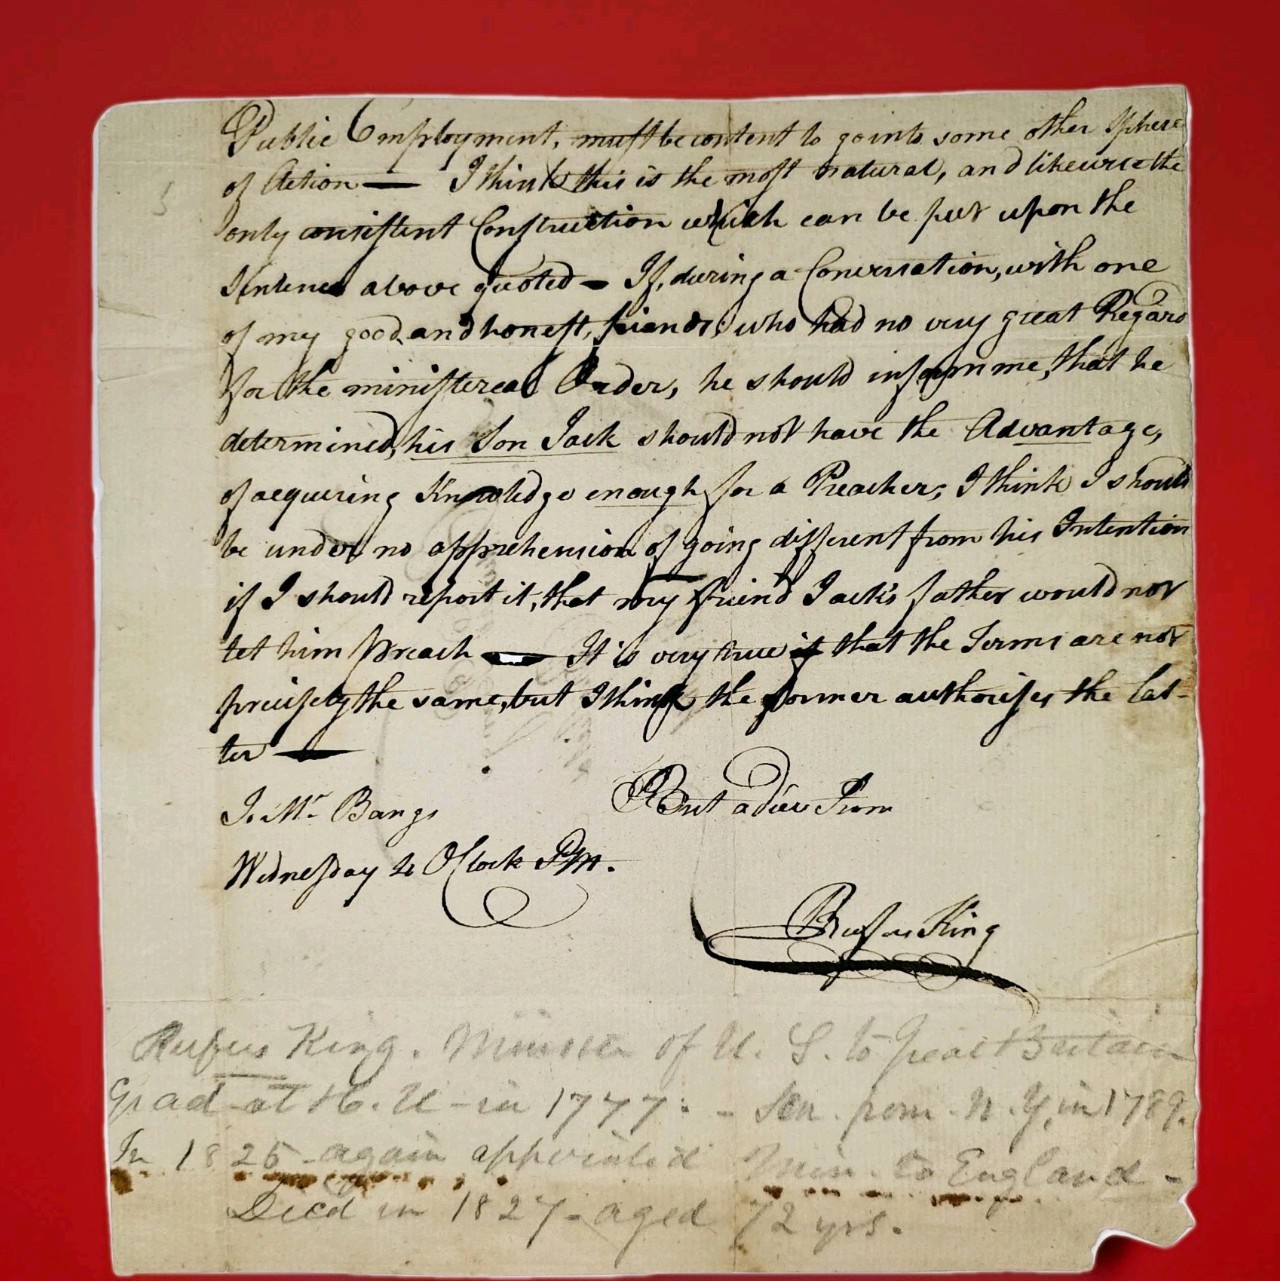 Public Employment, must be content to go into some other Sphere
of Action — I think this is the most natural, and likewise the
only consistent Construction which can be put upon the
Sentence above quoted — If, during a Conversation, with one
of my good and honest, friends, who had no very great Regard
for the ministereal Order, he should inform me, that he
determined, his Son Jack should not have the Advantage,
of acquiring Knowledge enough for a Preacher, I think I should
be under no apprehension of going different from his Intention
if I should report it, that my friend Jack's father would not
let him preach — It is very true that the Terms are not
precisely the same, but I think the former authorises the lat-
ter —
Mr Bangs
But adieu From
Wednesday O'Clock PM.
Rufus King
Rufus King. Minister of U. S. to Great Britain
Grad at H. U - in 1777. - Sen. from N. Y. in 1789.
In 1825 again appointed Min. to England -
Died in 1827 - aged 72 yrs.